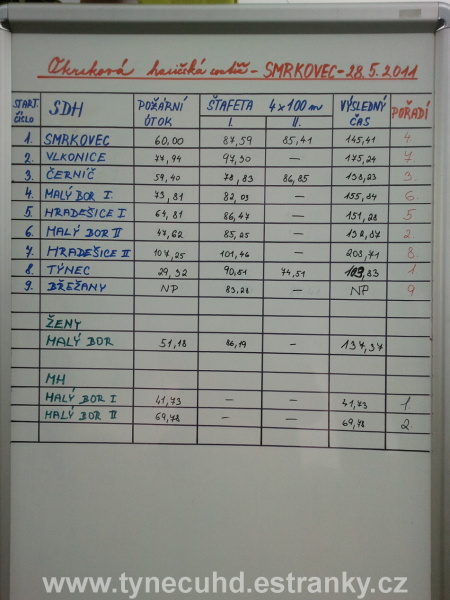 Okrsková hasičská soutěž - SMRKOVEC - 28.5.2011
START. ČÍSLO SDH POŽÁRNÍ ÚTOK ŠTAFETA 4 x 100 m I. II. VÝSLEDNÝ ČAS POŘADÍ
1. SMRKOVEC 60,00 87,59 85,41 145,41 4.
2. VLKONICE 77,94 97,30 — 175,24 7
3. ČERNÍČ 59,40 78,83 86,85 138,23 3.
4. MALÝ BOR I. 73,81 82,03 — 155,84 6
5. HRADEŠICE I 64,81 86,47 — 151,28 5
6. MALÝ BOR II 47,62 85,25 — 132,87 2.
7. HRADEŠICE II 107,25 101,46 — 208,71 8.
8. TÝNEC 29,32 90,81 74,51 103,83 1
9. BŘEŽANY NP 83,28 — NP 9
ŽENY
MALÝ BOR 51,18 86,19 — 137,37
MH
MALÝ BOR I 41,73 — — 41,73 1.
MALÝ BOR II 69,78 — — 69,78 2.
www.tynecuhd.estranky.cz